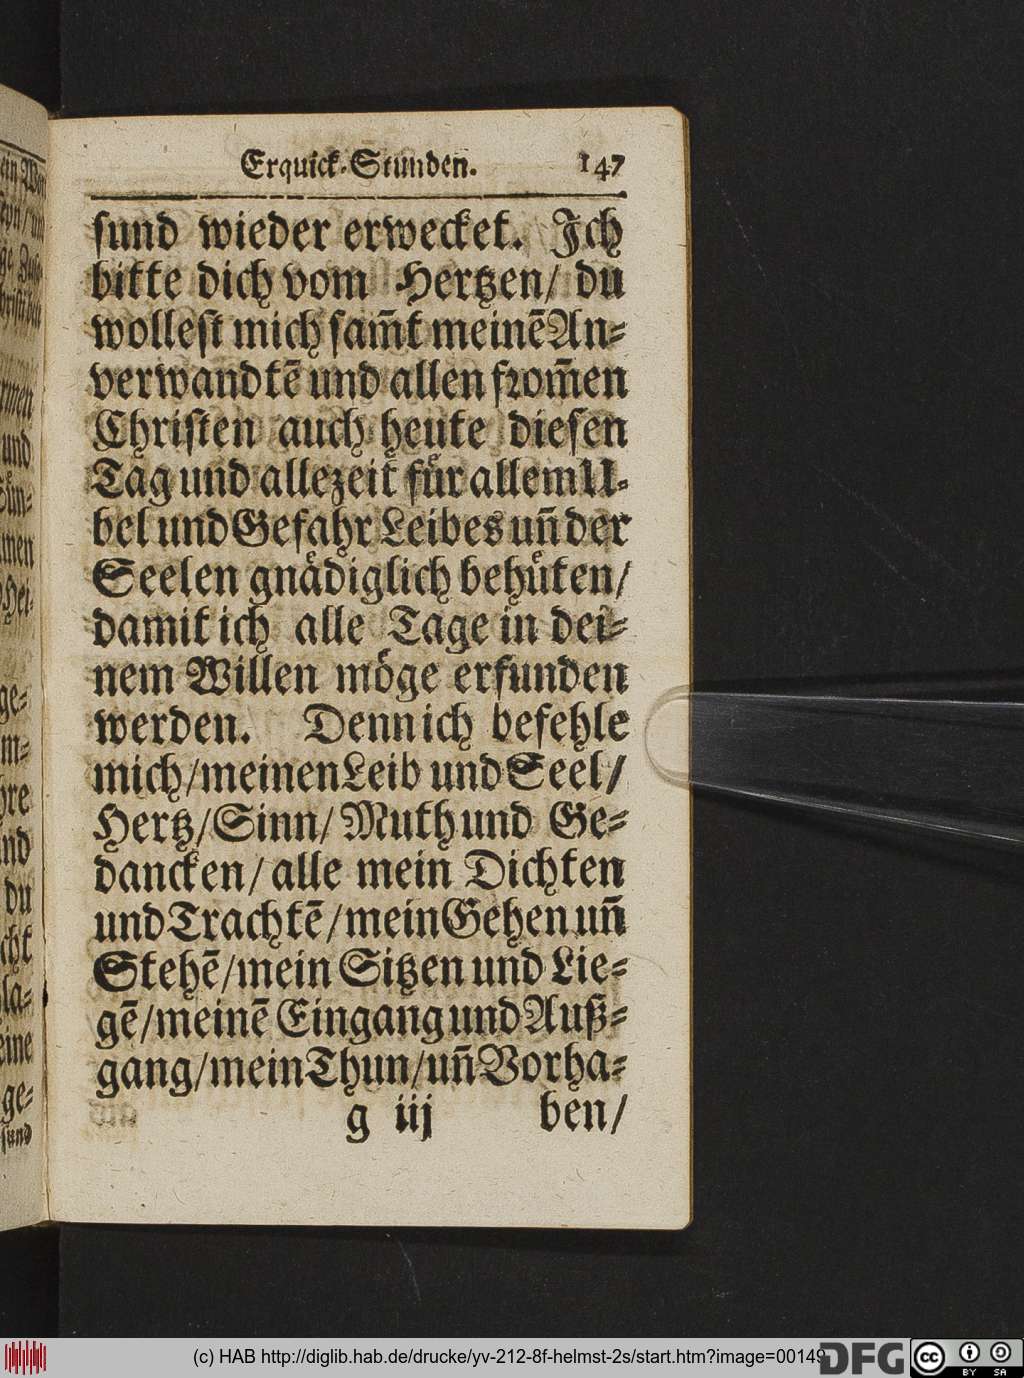 Erquick-Stunden. 147
sund wieder erwecket. Ich
bitte dich vom Hertzen/ du
wollest mich sam̃t meinẽ An-
verwandtẽ und allen from̃en
Christen auch heute diesen
Tag und allezeit fuͤr allem U-
bel und Gefahr Leibes uñ der
Seelen gnaͤdiglich behuͤten/
damit ich alle Tage in dei-
nem Willen moͤge erfunden
werden. Denn ich befehle
mich/ meinen Leib und Seel/
Hertz/ Sinn/ Muth und Ge-
dancken/ alle mein Dichten
und Trachtẽ/ mein Gehen uñ
Stehẽ/ mein Sitzen und Lie-
gẽ/ meinẽ Eingang und Auß-
gang/ mein Thun/ uñ Vorha-
g iij ben/
(c) HAB http://diglib.hab.de/drucke/yv-212-8f-helmst-2s/start.htm?image=00149
DFG
cc BY SA